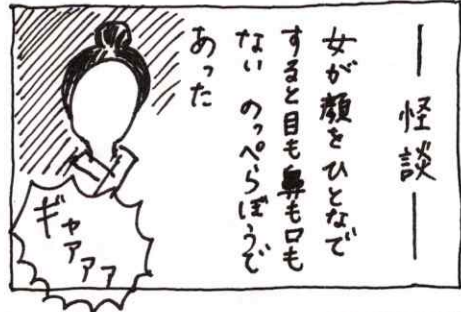 ― 怪談 ―
女が顔をひとなで
すると目も鼻も口も
ない のっぺらぼうで
あった
ギャアアア